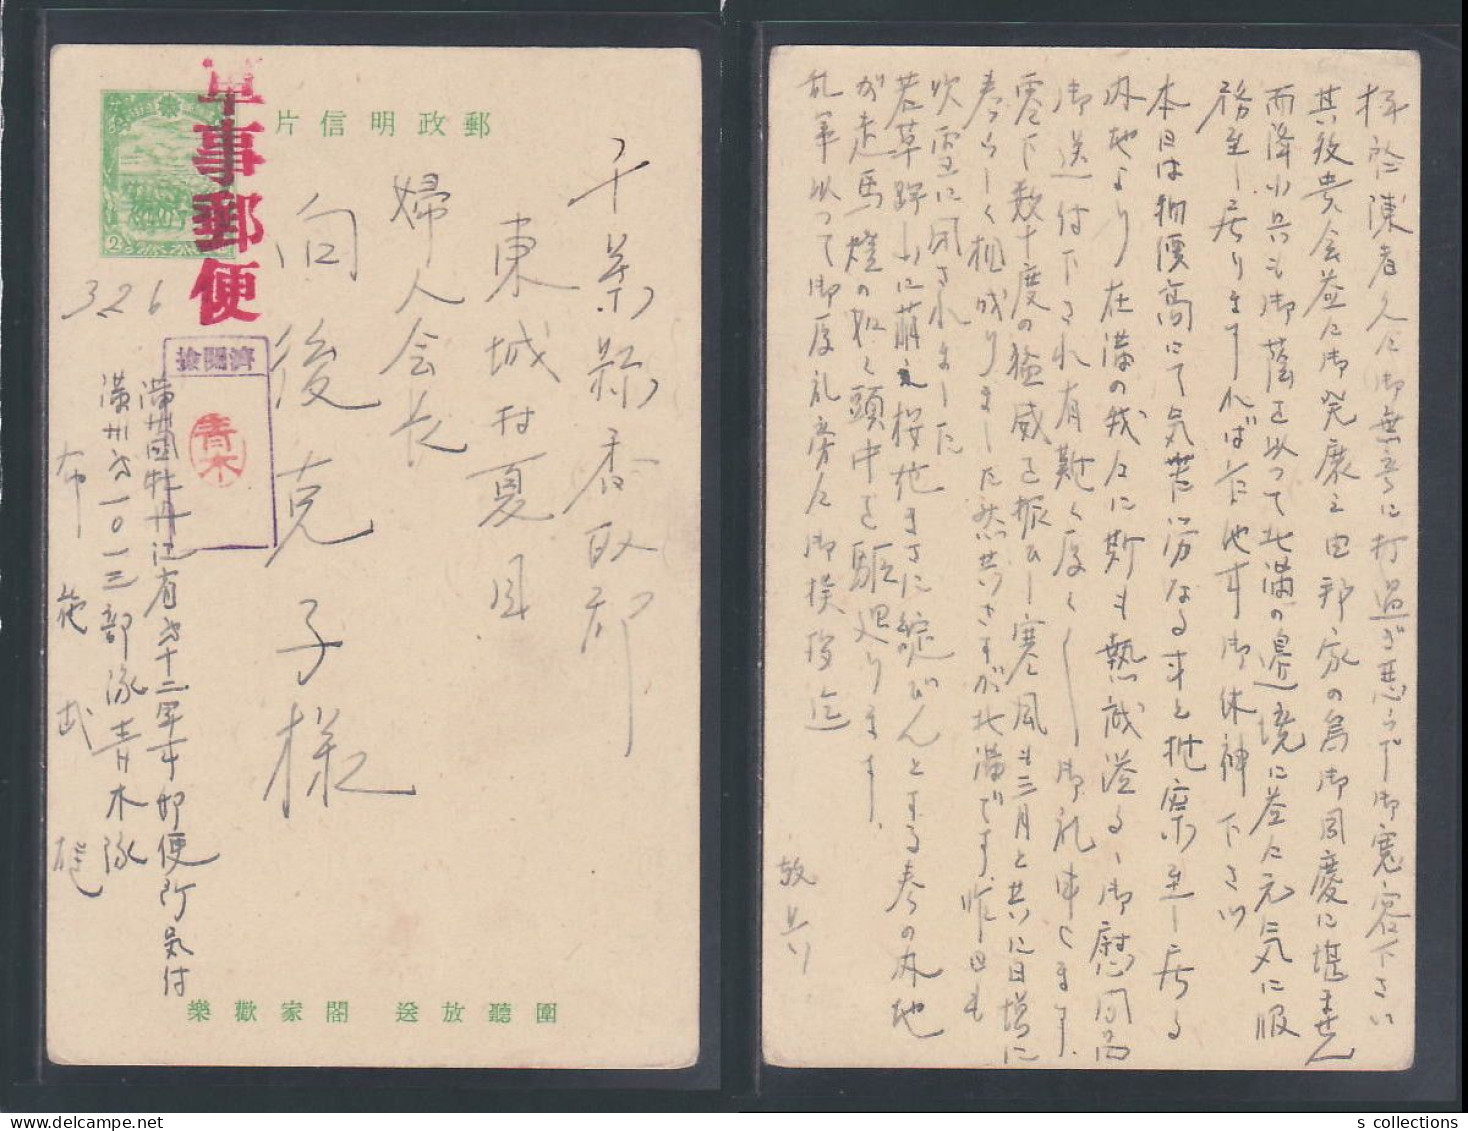 郵政明信片
軍事郵便
2
千葉縣香取郡
東城村夏目
婦人会長
向後克子様
3.2.6
檢閲濟
青木
満州國牡丹江省第十二軍事郵便所気付
満州第一〇一三部隊青木隊
布施武雄
闔家歡樂 送放聽圍
拝啓陳者久々御無音に打過ぎ悪しからず御寛容下さい
其後貴会益々御発展之由邦家の為御同慶に堪ません
而降小兵も御蔭を以って北満の邊境に益々元気に服
務致し居りますれば乍他事御休神下さい
本日は物價高にて気苦労なる事と推察致し居る
内地より在満の我々に斯も熱誠溢るゝ御慰問品
御送付下され有難く厚く〱御礼申します.
零下数十度の猛威を振ひし寒風も三月と共に日増に
春らしく相成りました然共さすが北満です.昨日も
吹雪に閉されました
若草野山に萌え桜花まさに綻びんとする春の内地
が走馬燈の如く頭中を駆廻ります.
乱筆以って御厚礼旁々御挨拶迄
敬具
s collections